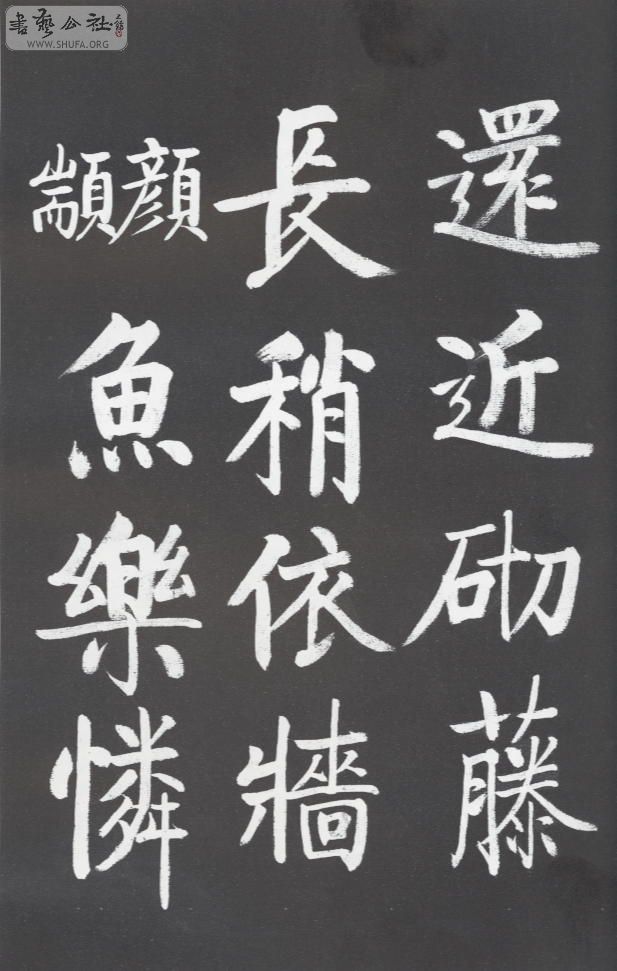 書藝公社
WWW.SHUFA.ORG
還近砌藤
長稍依牆
顏顓
魚樂憐